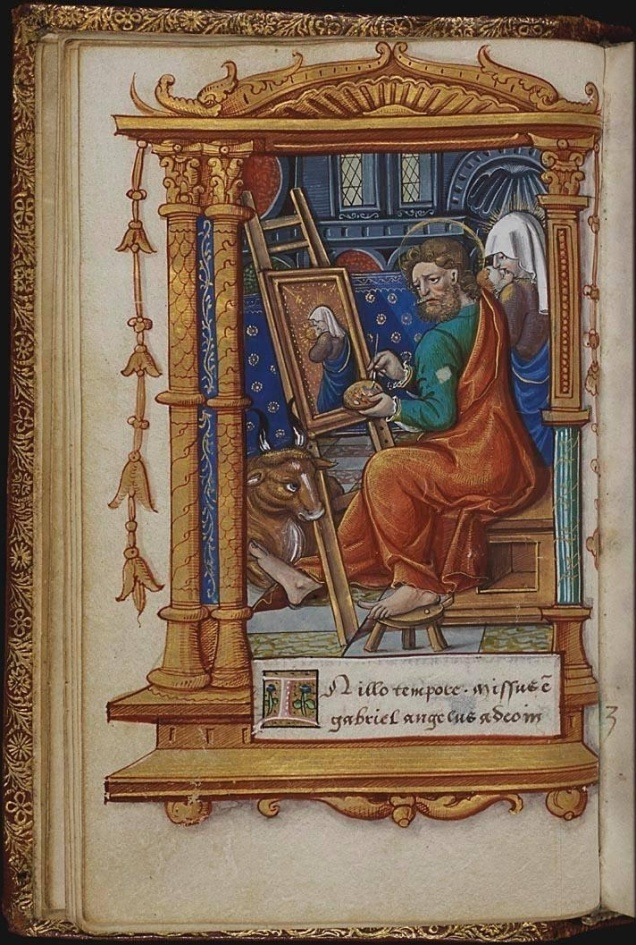 IN illo tempore. missus ē
gabriel angelus a deo in
3